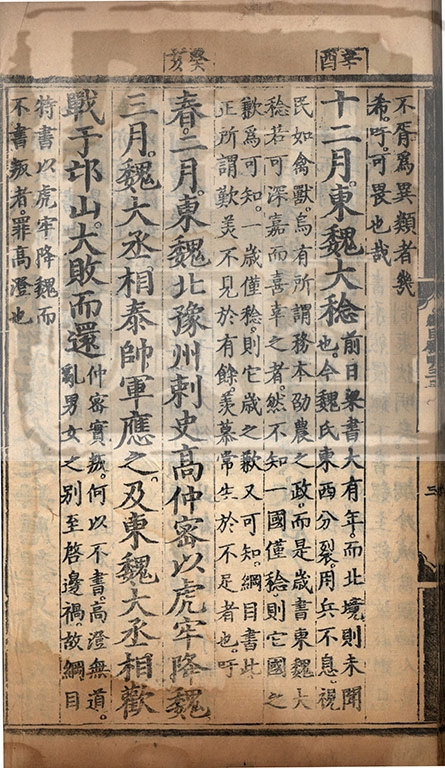 辛酉
不胥爲異類者幾
希。吁。可畏也哉
十二月。東魏大稔
前日梁書大有年。而北境則未聞
也。今魏氏東西分裂。用兵不息。視
民如禽獸。烏有所謂務本劭農之政。而是歲書東魏大
稔若可深嘉而喜幸之者。然不知一國僅稔則它國之
歉爲可知。一歲僅稔。則它歲之歉又可知。綱目書此
正所謂歎美不見於有餘。羨慕常生於不足者也。吁
癸亥
春。二月。東魏北豫州刺史高仲密以虎牢降魏
三月。魏大丞相泰帥軍應之。及東魏大丞相歡
戰于邙山。大敗而還
仲密實叛。何以不書。高澄無道。
亂男女之別至啓邊禍。故綱目
特書以虎牢降魏而
不書叛者。罪高澄也